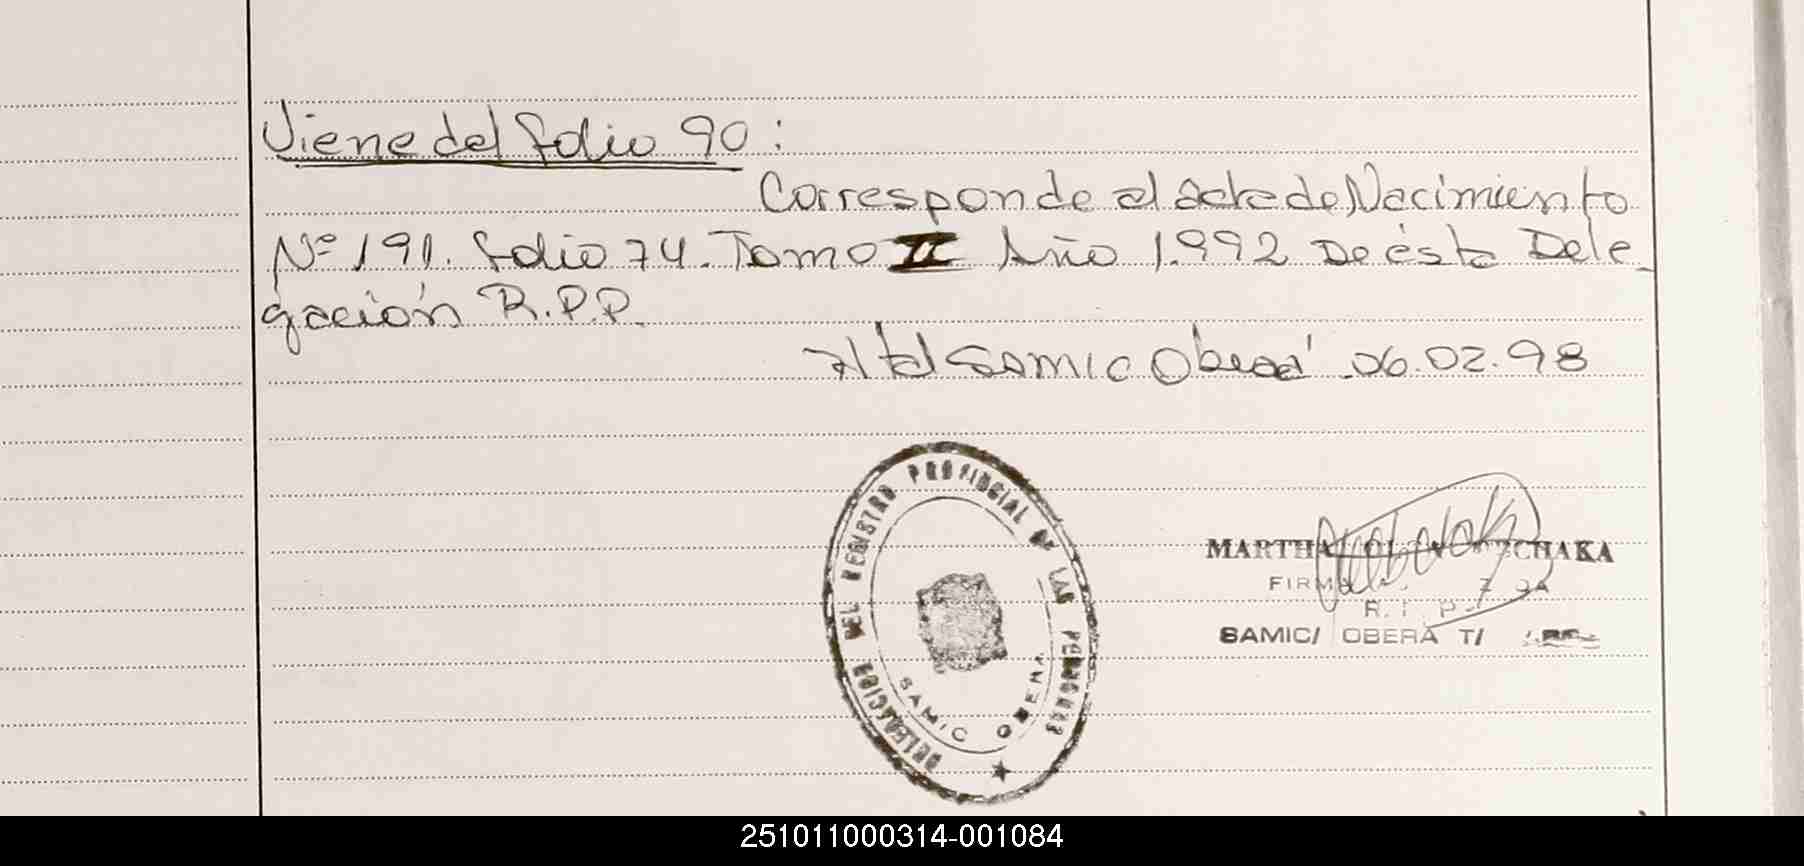 Viene del folio 90:
Corresponde al acta de Nacimiento
Nº 191. folio 74. Tomo II Año 1.992 De ésta Dele-
gación R.P.P.
Htal Samic Oberá 06.02.98
DELEGACION DEL REGISTRO PROVINCIAL DE LAS PERSONAS
SAMIC OBERA
MARTHA CHAKA
FIRMA
R. P.
SAMIC/ OBERA T/
251011000314-001084